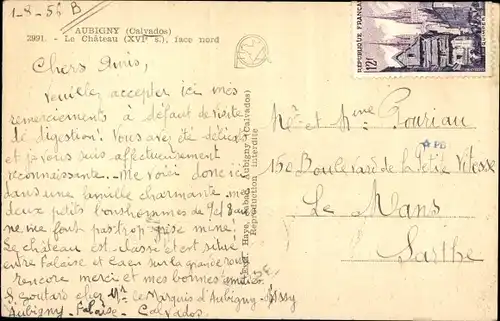 1-8-56 B
AUBIGNY (Calvados)
2991. - Le Château (XVIe s.), face nord
Chers Amis,
Veuillez accepter ici mes
remerciements à défaut de visite
de digestion. Vous avez été délicats
et je vous suis affectueusement
reconnaissante.. Me voici donc ici
dans une famille charmante, mes
deux petits bonshommes de 9 et 8 ans
ne me font pas trop grise mine!
Le château est classé et est situé
entre Falaise et Caen sur la grande route
encore merci et mes bonnes amitiés
S. Goutard chez Mr le Marquis d'Aubigny-d'Assy
Aubigny - Falaise - Calvados
Haye, Aubigny (Calvados)
Reproduction interdite
RÉPUBLIQUE FRANÇAISE
12F
QUIMPER
Mr et Mme Pouriau
PB
150 Boulevard de la Petite Vitesse
Le Mans
Sarthe